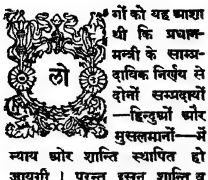 लोगों को यह आशा
थी कि प्रधान-
मन्त्री के साम्प्र-
दायिक निर्णय से
दोनों सम्प्रदायों
—हिन्दुओं और
मुसलमानों—में
न्याय और शान्ति स्थापित हो
जायगी । परन्तु इसने शान्ति व